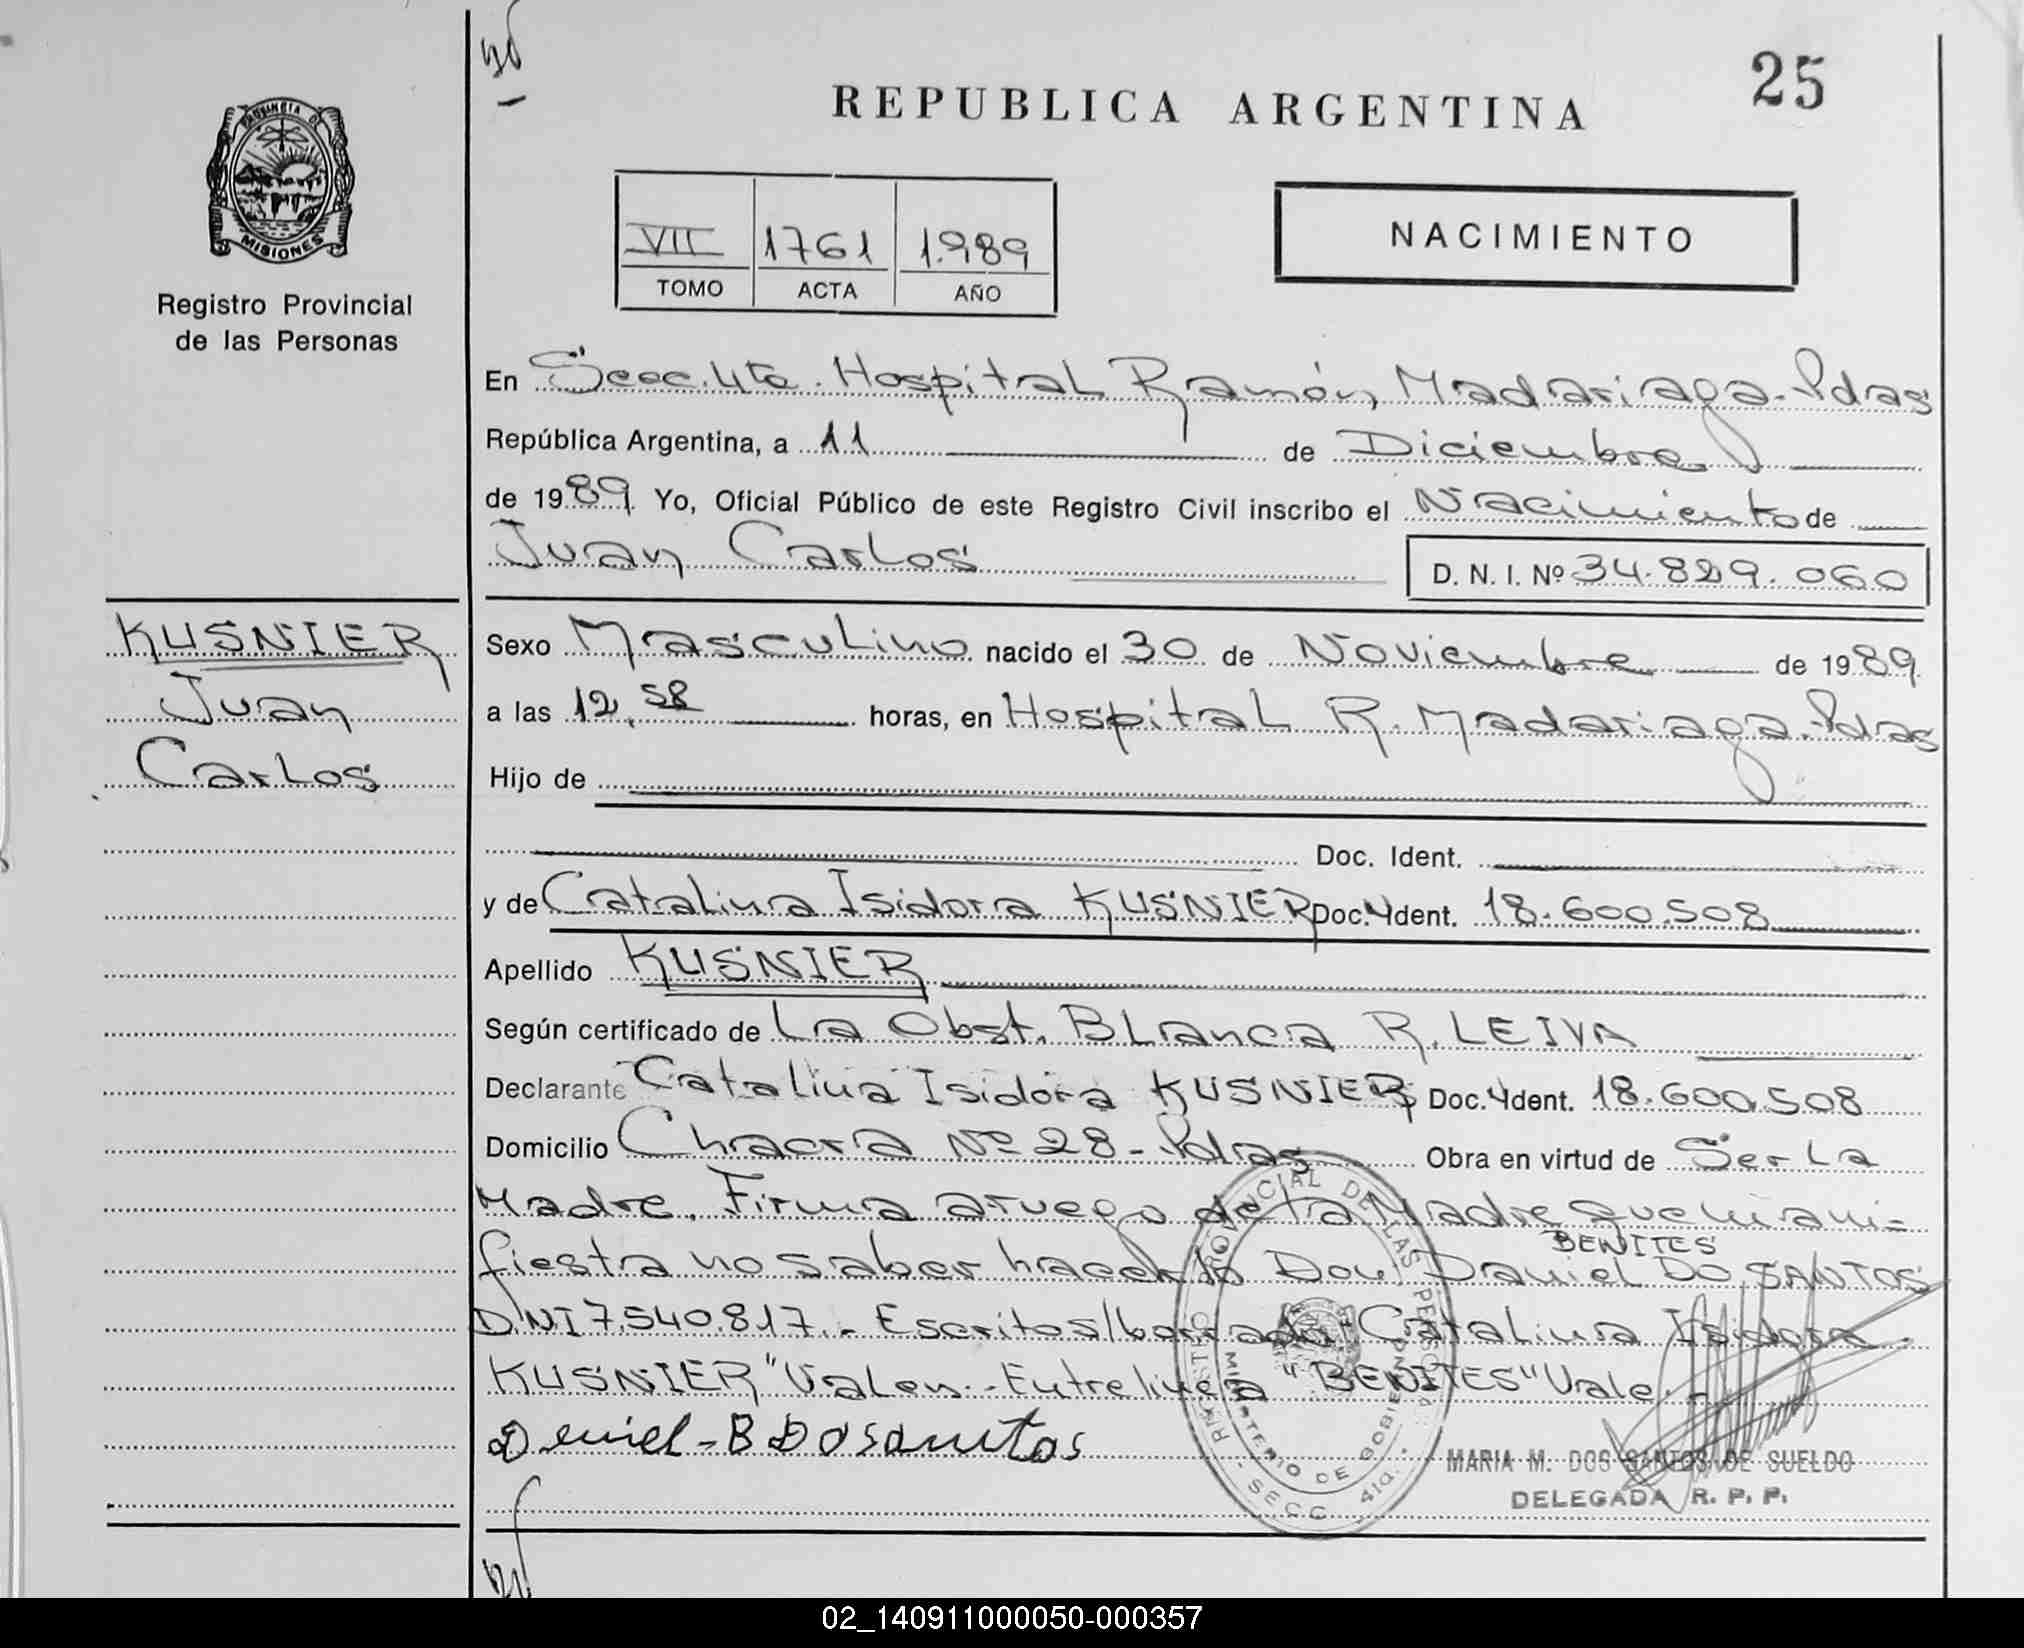 25
REPUBLICA ARGENTINA
PROVINCIA DE
MISIONES
Registro Provincial
de las Personas
VII 1761 1.989
TOMO ACTA AÑO
NACIMIENTO
En Secc. 4ta. Hospital Ramón, Madariaga-Pdas
República Argentina, a 11 de Diciembre
de 1989 Yo, Oficial Público de este Registro Civil inscribo el Nacimiento de
Juan Carlos D. N. I. Nº 34.829.060
KUSNIER
Juan
Carlos
Sexo Masculino nacido el 30 de Noviembre de 1989
a las 12,58 horas, en Hospital R. Madariaga-Pdas
Hijo de
Doc. Ident.
y de Catalina Isidora KUSNIER Doc. Ident. 18.600.508
Apellido KUSNIER
Según certificado de La Obst. Blanca R. LEIVA
Declarante Catalina Isidora KUSNIER Doc. Ident. 18.600.508
Domicilio Chacra Nº 28 - Pdas Obra en virtud de Ser La
Madre. Firma a ruego de la Madre que mani-
BENITES
fiesta no saber hacerlo Don Daniel DO SANTOS
DNI 7.540.817.- Escritos/borrado Catalina Isidora
KUSNIER "Valen.- Entrelinea "BENITES" Vale.-
Deniel-B Dosantos
REGISTRO PROVINCIAL DE LAS PERSONAS
MINISTERIO DE GOBIERNO
SECC. 4ta.
MARIA M. DOS SANTOS DE SUELDO
DELEGADA R. P. P.
02_140911000050-000357